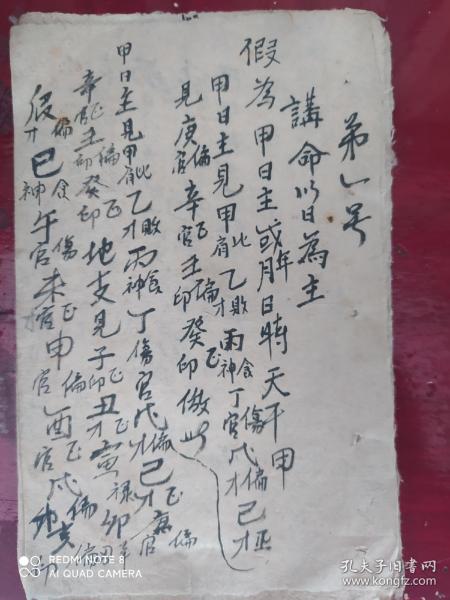 第一号
講命以日為主
假為甲日主或年月日時天干甲
甲日主見甲比肩乙敗才丙食神丁傷官戊偏才己正才
見庚偏官辛正官壬偏印癸正印倣此
甲日主見甲比肩乙敗才丙食神丁傷官戊偏才己正才庚偏官
辛正官壬偏印癸正印地支見子正印丑正才寅禄卯
巳食神午傷官未正申偏官酉正官戌偏
REDMI NOTE 8
AI QUAD CAMERA
孔夫子旧书网